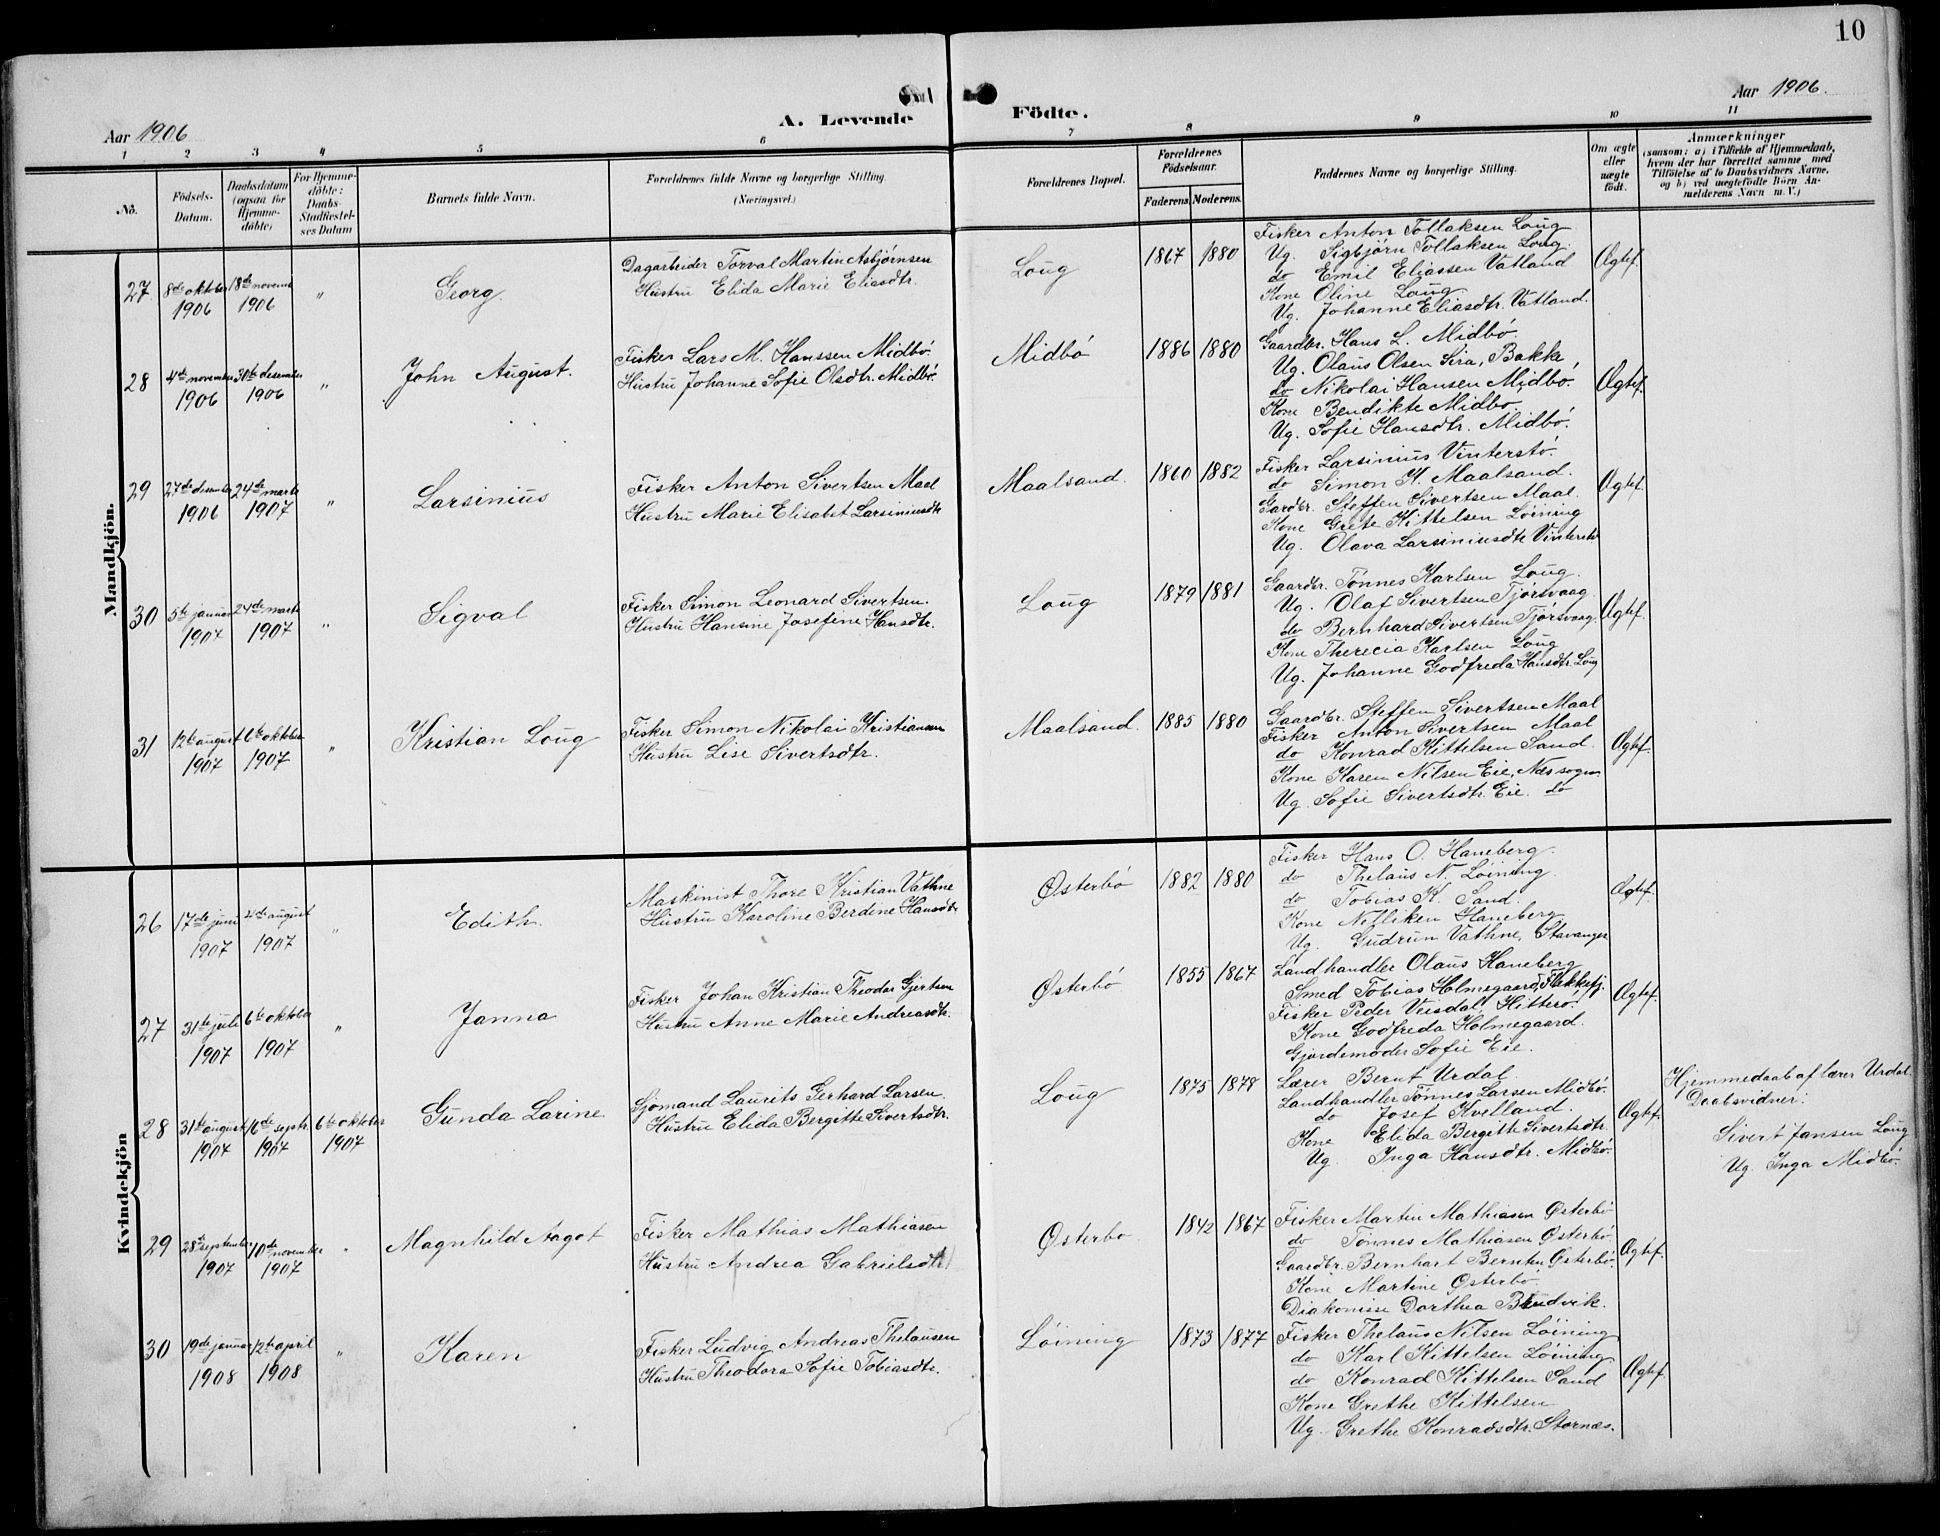 10
Aar 1906
A. Levende Födte.
Aar 1906.
1 2 3 4 5 6 7 8 9 10 11
No.
Födsels-Datum.
Daabsdatum (ogsaa for Hjemme-döbte)
For Hjemme-döbte: Daabs-Stadfæstel-ses Datum
Barnets fulde Navn.
Forældrenes fulde Navne og borgerlige Stilling. (Næringsvei.)
Forældrenes Bopæl.
Forældrenes Födselsaar.
Faderens. Moderens.
Faddernes Navne og borgerlige Stilling.
Om ægte eller uægte födt.
Anmærkninger
(saasom: a) i Tilfælde af Hjemmedaab, hvem der har forrettet samme, med Tilföielse af to Daabsvidners Navne, og b) ved uægtefödte Börn An-melderens Navn m. V.)
Mandkjön.
27
8de oktober 1906
18de novemb 1906
"
Georg.
Dagarbeider Torval Martin Asbjørnsen
Hustru Elida Marie Eliasdtr.
Loug
1867 1880
Fisker Anton Tollaksen Loug
Ug. Sigbjørn Tollaksen Loug.
do Emil Eliassen Vatland
Kone Oline Loug
Ug. Johanne Eliasdtr. Vatland.
Ægtef.
28
4de november 1906
30te desember 1906
"
John August.
Fisker Lars M. Hanssen Midbö.
Hustru Johanne Sofie Olsdtr. Midbö.
Midbö
1886 1880
Gaardbr. Hans L. Midbö
Ug. Olaus Olsen Sira, Bakke
do Nikolai Hansen Midbö.
Kone Bendikte Midbö.
Ug. Sofie Hansdtr. Midbö.
Ægtef.
29
27de desember 1906
24de marts 1907
"
Larsinius
Fisker Anton Sivertsen Maal
Hustru Marie Elisabet Larsiniusdtr
Maalsand.
1860 1882
Fisker Larsinius Vinterstö.
do Simon K. Maalsand.
Gardbr. Steffen Sivertsen Maal.
Kone Grete Kittelsen Löining
Ug. Olava Larsiniusdtr Vinterstö
Ægtef.
30
5te januar 1907
24de marts 1907
"
Sigval
Fisker Simon Leonard Sivertsen.
Hustru Hansine Josefine Hansdtr.
Loug
1879 1881
Gaardbr. Tønnes Karlsen Loug.
Ug. Olaf Sivertsen Tjörsvaag
do Bernhard Sivertsen Tjörsvaag.
Kone Therecia Karlsen Loug
Ug. Johanne Godfreda Hansdtr. Loug
Ægtef.
31
12te august 1907
6te oktober 1907
"
Kristian Loug
Fisker Simon Nikolai Kristiansen
Hustru Lise Sivertsdtr.
Maalsand.
1885 1880
Gaardbr. Steffen Sivertsen Maal
Fisker Anton Sivertsen Maal
do Konrad Kittelsen Sand.
Kone Karen Nilsen Eie, Næs sogn
Ug. Sofie Sivertsdtr. Eie. do
Ægtef.
Kvindekjön
26
17de juni 1907
4de august 1907
"
Edith.
Maskinist Thore Kristian Vathne
Hustru Karoline Berdine Hansdtr
Østerbö
1882 1880
Fisker Hans O. Haneberg.
do Thelaus N. Löining.
do Tobias K. Sand.
Kone Nelliken Haneberg
Ug. Gudrun Vathne, Stavanger
Ægtef.
27
31te juli 1907
6te oktober 1907
"
Janna
Fisker Johan Kristian Theodor Gjertsen
Hustru Anne Marie Andreasdtr.
Østerbö
1855 1867
Landhandler Olaus Haneberg
Smed Tobias Holmegaard, Flekkefj.
Fisker Peder Veisdal, Hitterö
Kone Godfreda Holmegaard.
Gjordemoder Sofie Eie.
Ægtef.
28
31te august 1907
16de septr. 1907
6te oktober 1907
Gunda Larine
Sjömand Laurits Gerhard Larsen.
Hustru Elida Bergitte Sivertsdtr.
Loug
1875 1878
Lærer Bernt Urdal.
Landhandler Tönnes Larsen Midbö.
do Josef Kvelland.
Kone Elida Bergitte Sivertsdtr.
Ug. Inga Hansdtr. Midbö.
Ægtef.
Hjemmedaab af lærer Urdal.
Daabsvidner:
Sivert Jansen Loug
Ug. Inga Midbö.
29
28de september 1907
10de november 1907
"
Magnhild Aagot
Fisker Mathias Mathiasen
Hustru Andrea Gabrielsdtr
Østerbö
1842 1867
Fisker Martin Mathiasen Østerbö
do Tønnes Mathiasen Østerbö.
Gaardbr. Bernhart Berntsen Østerbö.
Kone Martine Østerbö.
Diakonisse Dorthea Bludvik.
Ægtef.
30
19de januar 1908
12te april 1908
"
Karen
Fisker Ludvig Andreas Thelausen
Hustru Theodora Sofie Tobiasdtr.
Löining
1873 1877
Fisker Thelaus Nilsen Löining
do Karl Kittelsen Löining
do Konrad Kittelsen Sand
Kone Grethe Kittelsen
Ug. Grethe Konradsdtr. Stornæs.
Ægtef.